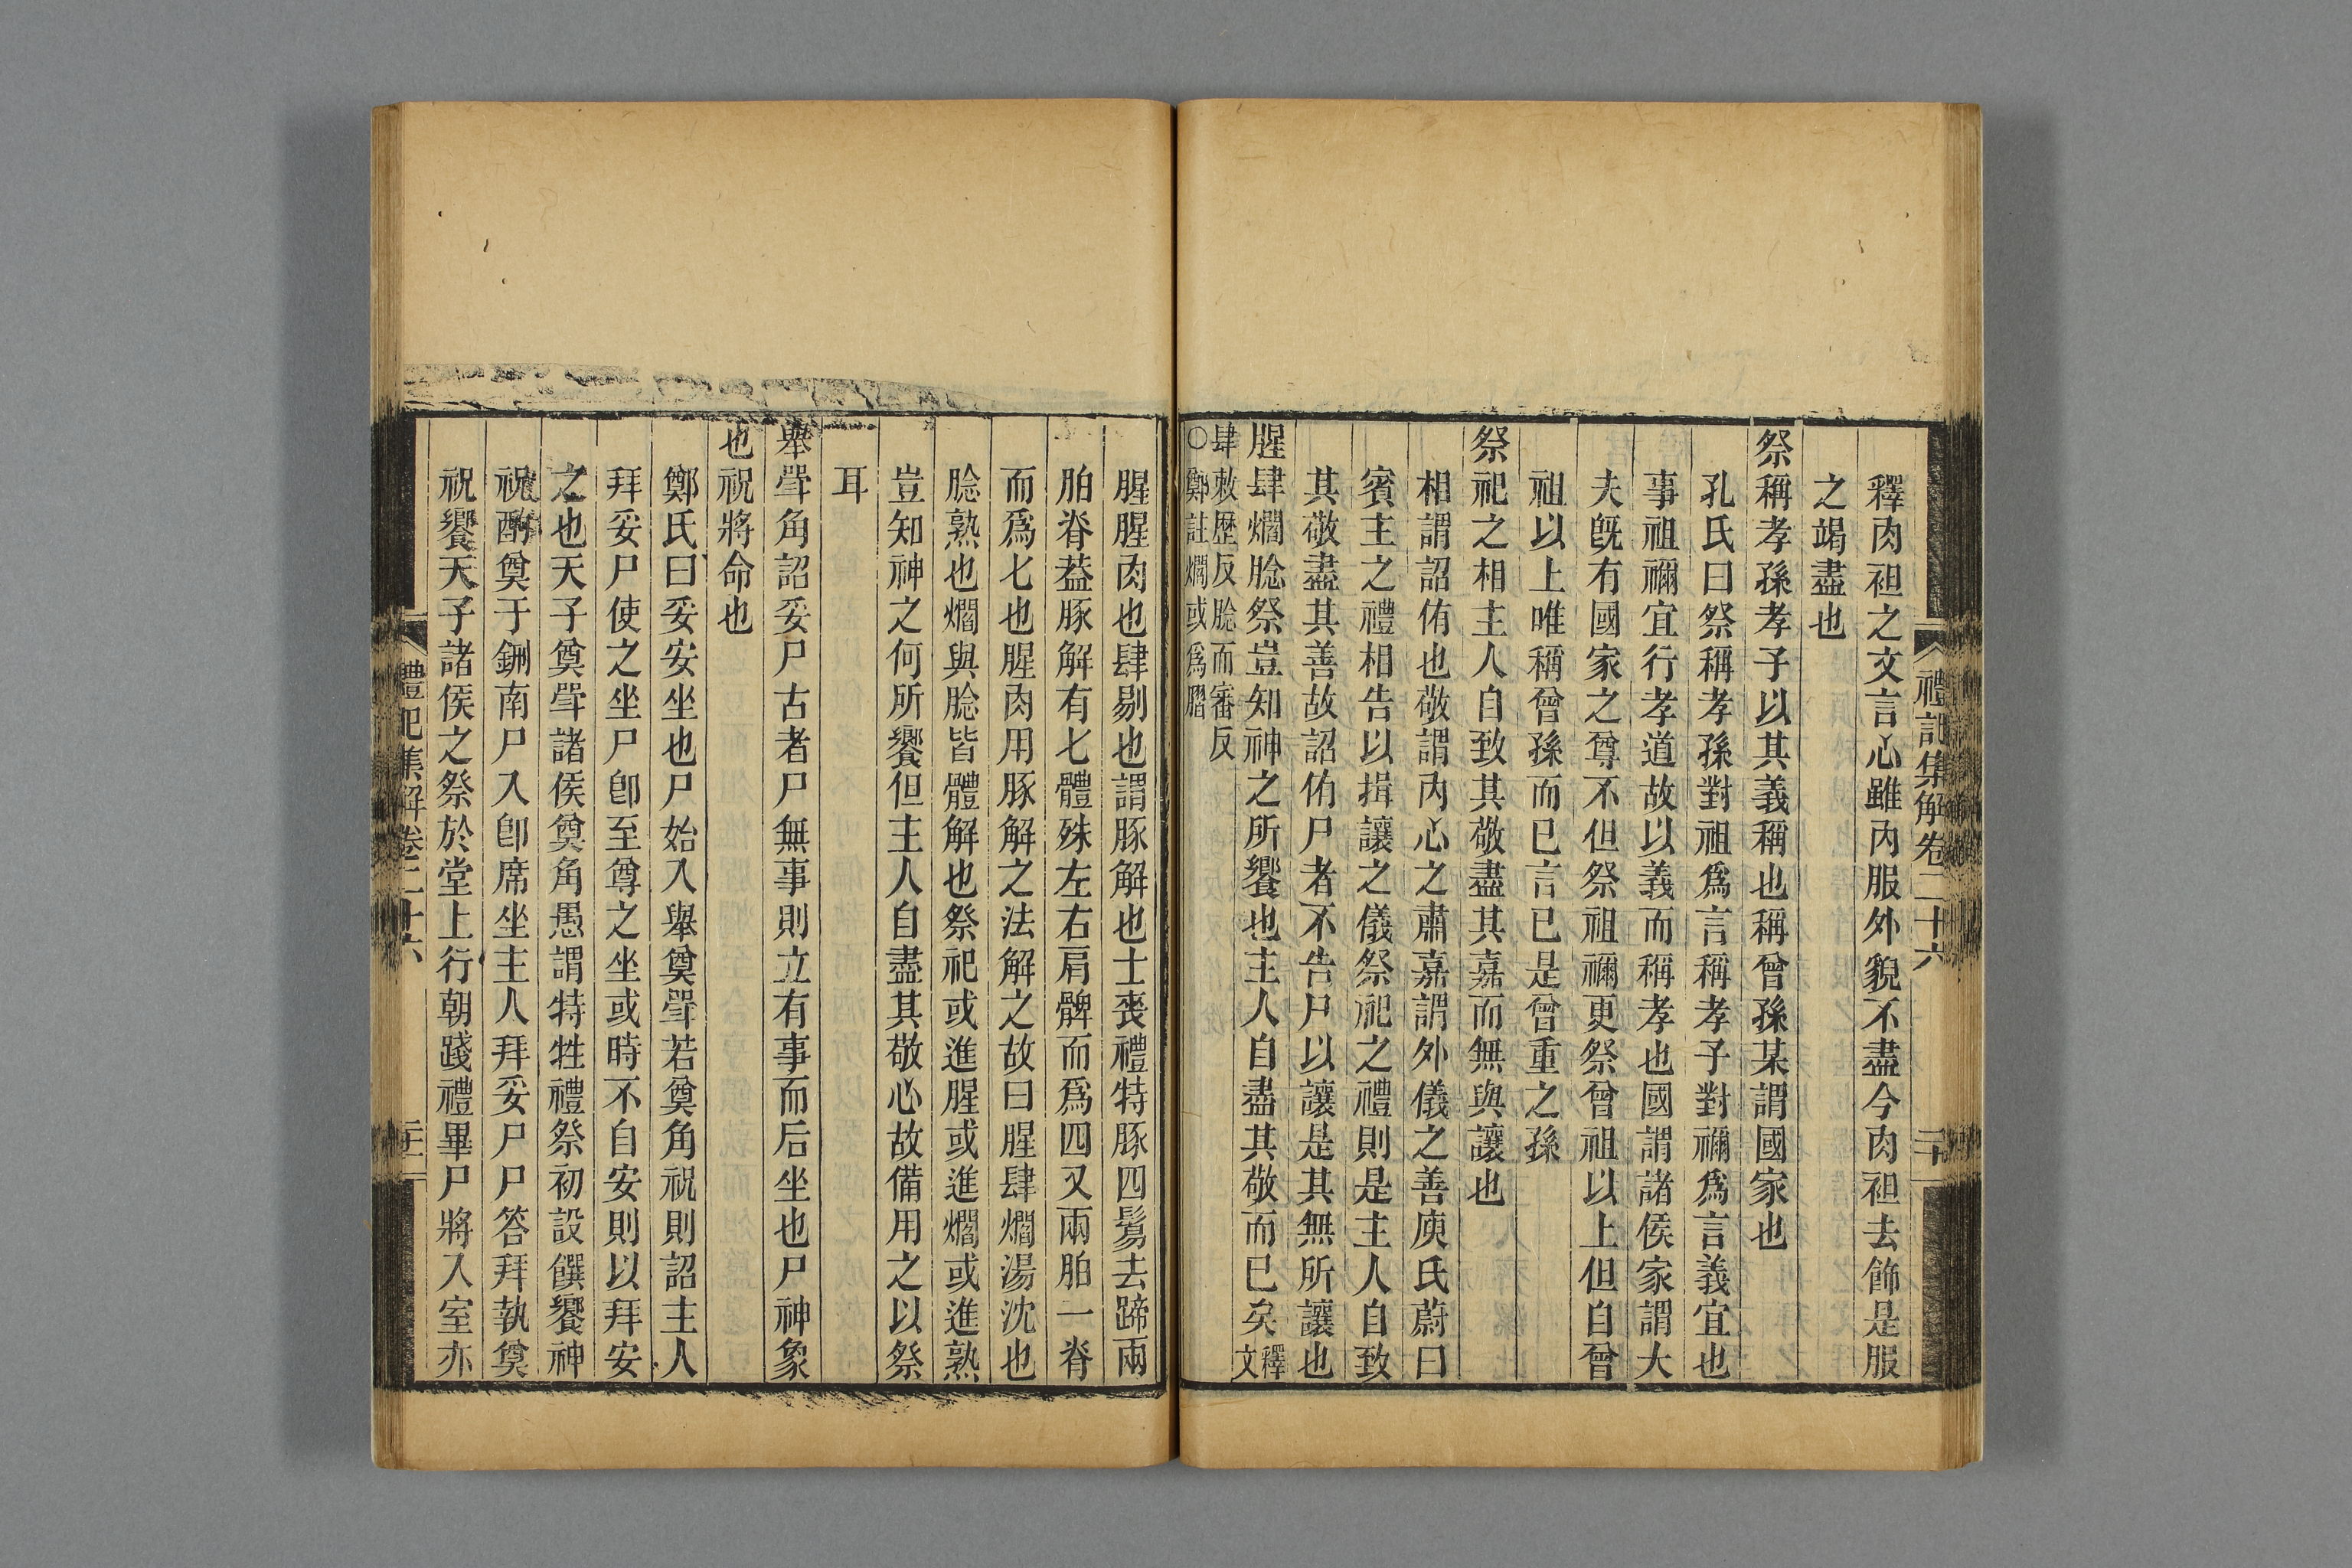 禮記集解卷二十六
二十
釋肉袒之文言心雖內服外貌不盡今肉袒去飾是服
之竭盡也
祭稱孝孫孝子以其義稱也稱曾孫某謂國家也
孔氏曰祭稱孝孫對祖爲言稱孝子對禰爲言義宜也
事祖禰宜行孝道故以義而稱孝也國謂諸侯家謂大
夫旣有國家之尊不但祭祖禰更祭曾祖以上但自曾
祖以上唯稱曾孫而已言已是曾重之孫
祭祀之相主人自致其敬盡其嘉而無與讓也
相謂詔侑也敬謂內心之肅嘉謂外儀之善庾氏蔚曰
賓主之禮相告以揖讓之儀祭祀之禮則是主人自致
其敬盡其善故詔侑尸者不告尸以讓是其無所讓也
腥肆爓腍祭豈知神之所饗也主人自盡其敬而已矣釋文
肆敕歷反腍而審反
○鄭註爓或爲膶
腥腥肉也肆剔也謂豚解也士喪禮特豚四鬄去蹄兩
胉脊葢豚解有七體殊左右肩髀而爲四又兩胉一脊
而爲七也腥肉用豚解之法解之故曰腥肆爓湯沈也
腍熟也爓與腍皆體解也祭祀或進腥或進爓或進熟
豈知神之何所饗但主人自盡其敬心故備用之以祭
耳
舉斝角詔妥尸古者尸無事則立有事而后坐也尸神象
也祝將命也
鄭氏曰妥安坐也尸始入舉奠斝若奠角祝則詔主人
拜妥尸使之坐尸卽至尊之坐或時不自安則以拜安
之也天子奠斝諸侯奠角愚謂特牲禮祭初設饌饗神
祝酌奠于鉶南尸入卽席坐主人拜妥尸尸答拜執奠
祝饗天子諸侯之祭於堂上行朝踐禮畢尸將入室亦
禮記集解卷二十六